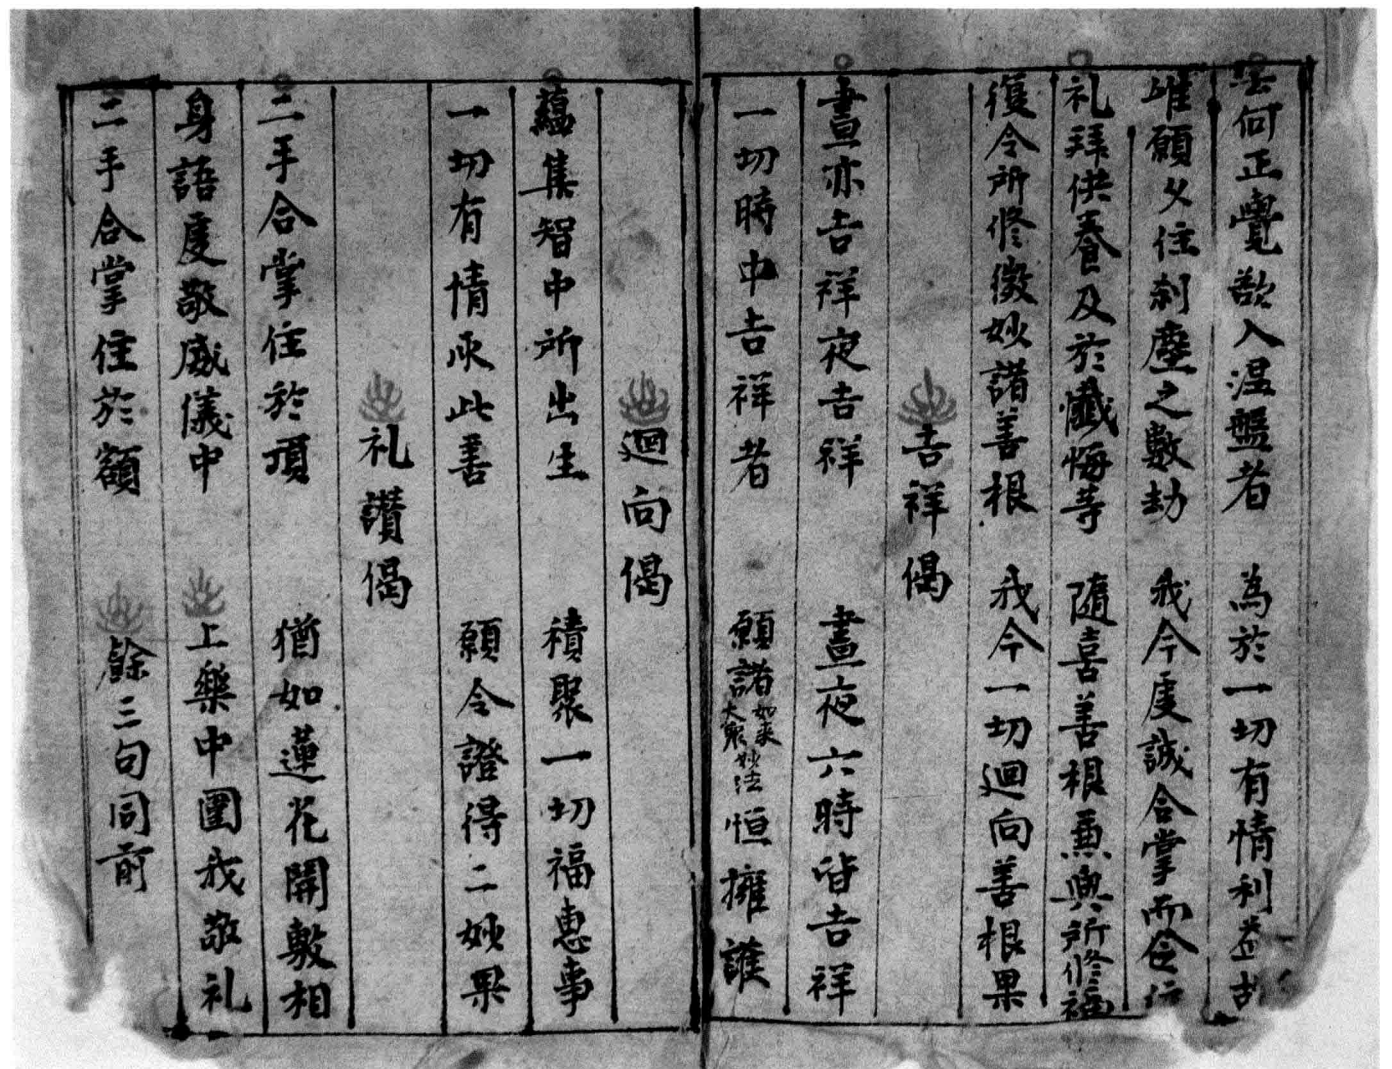 云何正覺欲入湼盤者　為於一切有情利益故
唯願久住刹塵之數劫　我今虔誠合掌而令住
礼拜供養及於懺悔等　隨喜善根兼與所修福
復令所修微妙諸善根　我今一切迴向善根果
吉祥偈
晝亦吉祥夜吉祥　晝夜六時皆吉祥
一切時中吉祥者　願諸如来妙法大衆恒擁護
迴向偈
蘊集智中所出生　積聚一切福惠事
一切有情承此善　願令證得二妙果
礼讃偈
二手合掌住於頂　猶如蓮花開敷相
身語虔敬威儀中　上樂中圍我敬礼
二手合掌住於額　餘三句同前